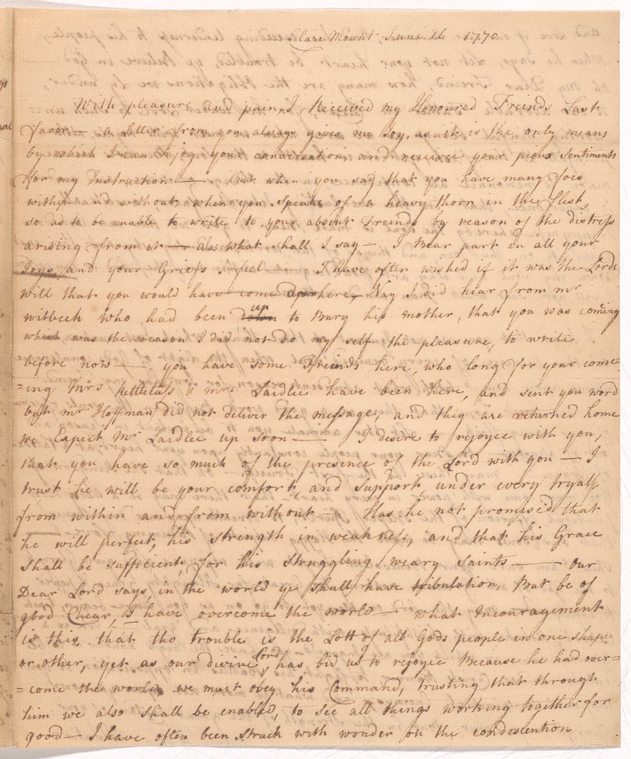 Clare Mount June 14 1770
With pleasure and pain I Received my Honoured Freinds Last
favor — a Letter from you always gives me Joy, as it is the only means
by which I can injoye your conversation and receive your pious sentiments
for my Instruction — But when you say that you have many foes
within and without when you Speake of a heavy thorn in the flesh
so as to be unable to write to your absent Freinds by reason of the distress
arising from it — what shall I say — I Bear part in all your
Joys and your Griefs I feel — I have often wished if it was the Lords
will that you would have come here, Nay I did hear from mr
witbeck who had been up to Bury his mother, that you was coming
which was the reason I did not do my self the pleasure, to write
before now — you have some Freinds here, who long for your come
=ing Mrs & mrs Laidlie have been here, and sent you word
but mr Hoffman did not deliver the message, and they are returned home
we Expect Mr Laidlie up soon — I desire to rejoyce with you,
that you have so much of the presence of the Lord with you — I
trust he will be your comfort and Support under every tryall
from within and from without — Has he not promised that
he will perfect his strength in weakness, and that his Grace
shall be sufficient, for his struggling weary saints — our
Dear Lord says, in the world ye shall have tribulation, But be of
good Chear, I have overcome the world — what Incouragement
is this, that tho trouble is the Lott of all Gods people in one shape
or other, yet as our divine Lord, has bid us to rejoyce Because he had over=
=come the world, we must obey his Command, trusting that through
him we also shall be enabled, to see all things working together for
good — I have often been struck with wonder on the condecention